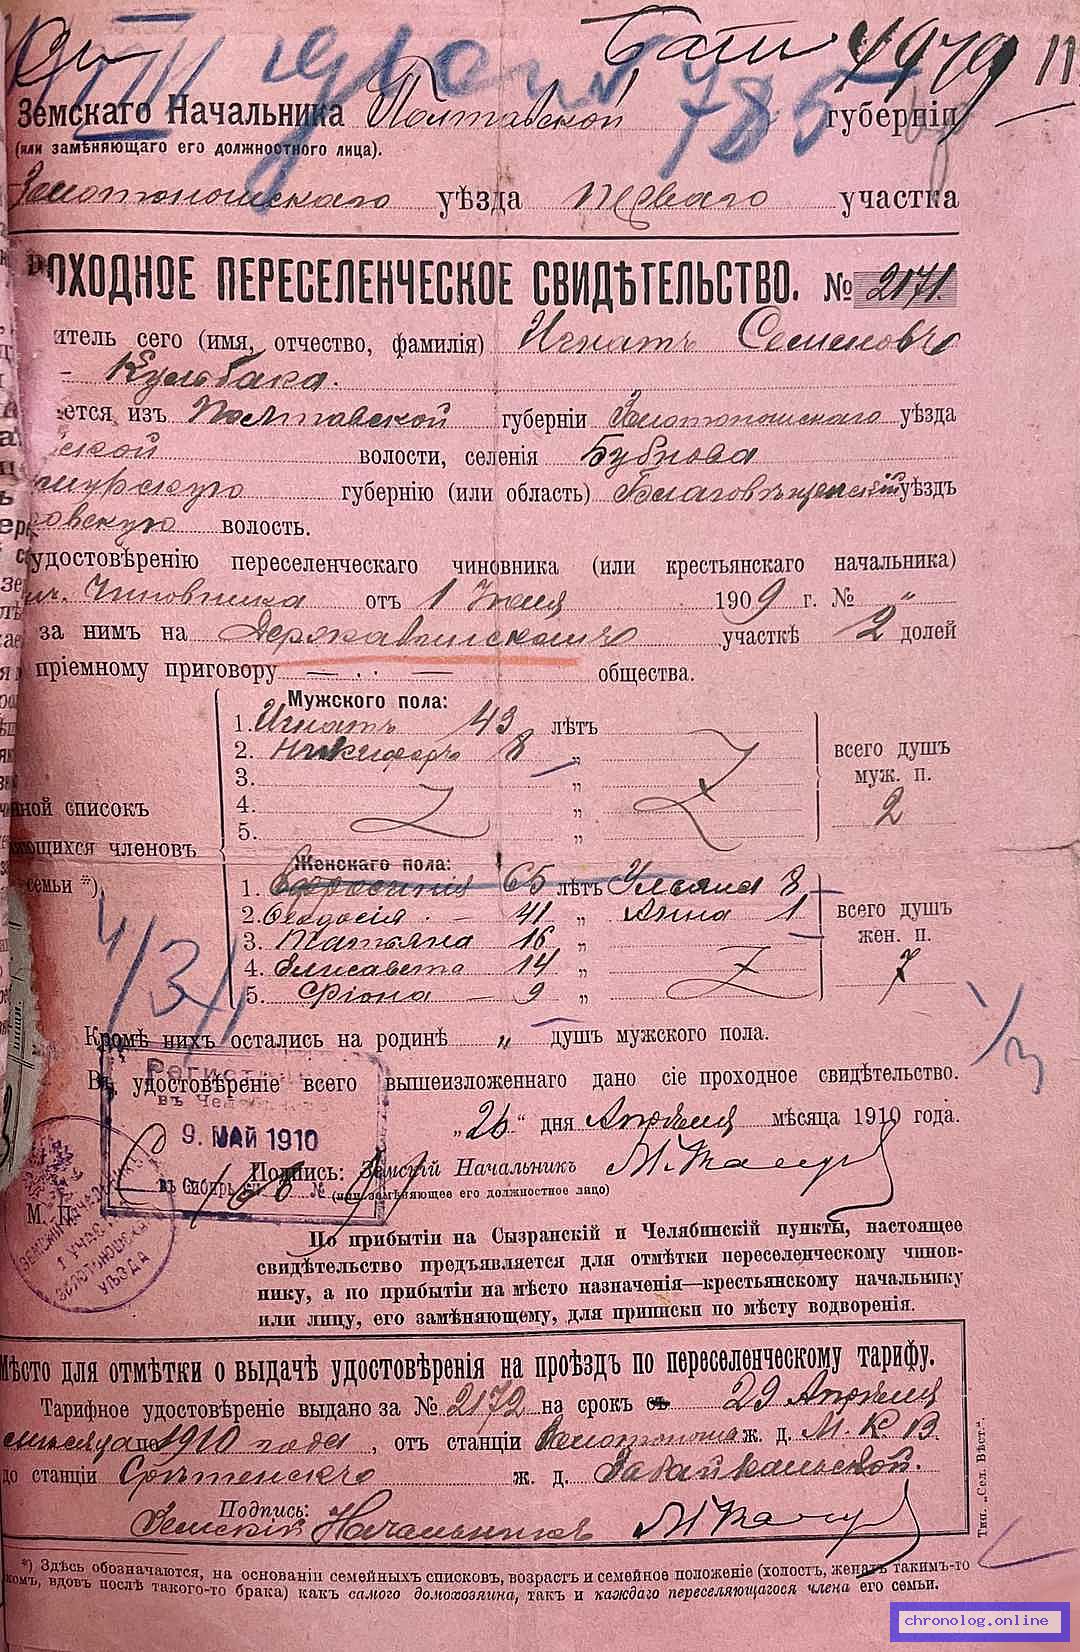 785
Земскаго Начальника Полтавской губерніи
(или замѣняющаго его должностного лица).
Золотоношскаго уѣзда перваго участка
ПРОХОДНОЕ ПЕРЕСЕЛЕНЧЕСКОЕ СВИДѢТЕЛЬСТВО. № 2171.
итель сего (имя, отчество, фамилія) Игнатъ Семеновъ
Кульбака.
ется изъ Полтавской губерніи Золотоношскаго уѣзда
ской волости, селенія Бубнова
мурскую губернію (или область) Благовѣщенскій уѣздъ
овскую волость.
удостовѣренію переселенческаго чиновника (или крестьянскаго начальника)
Чиновника отъ 1 Іюля 1909 г. № "
за нимъ на Державинскомъ участкѣ 2 долей
пріемному приговору — . . — общества.
Мужского пола:
1. Игнатъ 43 лѣтъ
2. Никифоръ 8 "
3. "
4. "
5. "
всего душъ
муж. п.
2
ной списокъ
ющихся членовъ
семьи *).
Женскаго пола:
1. Евфросинія 65 лѣтъ Ульяна 8
2. Ѳеодосія - 41 " Анна 1
3. Татьяна 16 "
4. Елисавета 14 "
5. Фіона - 9 "
всего душъ
жен. п.
7
Кромѣ нихъ остались на родинѣ " душъ мужского пола.
Въ удостовѣреніе всего вышеизложеннаго дано сіе проходное свидѣтельство.
„26" дня Апрѣля мѣсяца 1910 года.
9. МАЙ 1910
въ Сибирь №
Подпись: Земскій Начальникъ
(или замѣняющее его должностное лицо)
М. П.
ЗЕМСКІЙ НАЧАЛЬНИКЪ
1 УЧАСТКА
ЗОЛОТОНОШСКАГО
УѢЗДА
По прибытіи на Сызранскій и Челябинскій пункты, настоящее
свидѣтельство предъявляется для отмѣтки переселенческому чинов-
нику, а по прибытіи на мѣсто назначенія—крестьянскому начальнику
или лицу, его замѣняющему, для приписки по мѣсту водворенія.
Мѣсто для отмѣтки о выдачѣ удостовѣренія на проѣздъ по переселенческому тарифу.
Тарифное удостовѣреніе выдано за № 2172 на срокъ съ 29 Апрѣля
мѣсяца 1910 года, отъ станціи Золотоноша ж. д. М. К. В.
до станціи Срѣтенскъ ж. д. Забайкальской.
Подпись:
Земскій Начальникъ
*) Здѣсь обозначаются, на основаніи семейныхъ списковъ, возрастъ и семейное положеніе (холостъ, женатъ такимъ-то
комъ, вдовъ послѣ такого-то брака) какъ самого домохозяина, такъ и каждаго переселяющагося члена его семьи.
Тип. „Сел. Вѣст."
chronolog.online